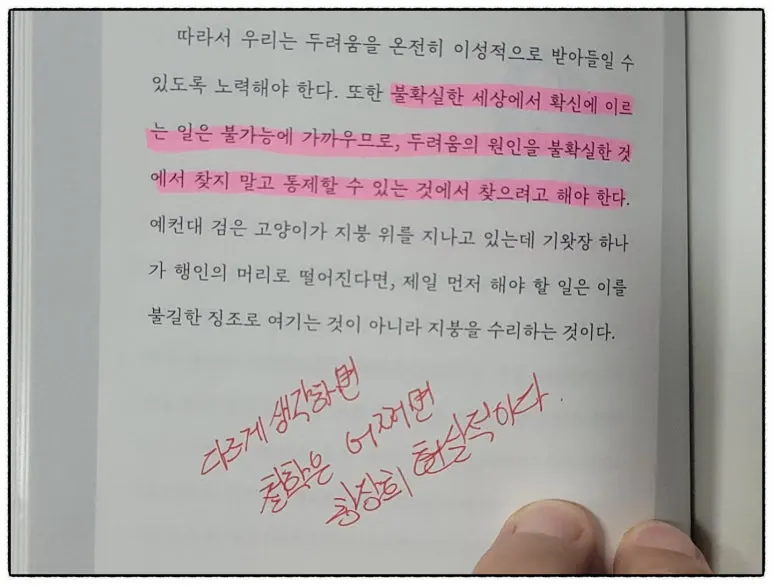 따라서 우리는 두려움을 온전히 이성적으로 받아들일 수
있도록 노력해야 한다. 또한 불확실한 세상에서 확신에 이르
는 일은 불가능에 가까우므로, 두려움의 원인을 불확실한 것
에서 찾지 말고 통제할 수 있는 것에서 찾으려고 해야 한다.
예컨대 검은 고양이가 지붕 위를 지나고 있는데 기왓장 하나
가 행인의 머리로 떨어진다면, 제일 먼저 해야 할 일은 이를
불길한 징조로 여기는 것이 아니라 지붕을 수리하는 것이다.
다르게 생각하면
철학은 어쩌면
굉장히 현실적이다.